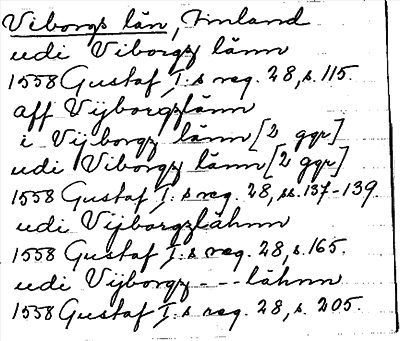 Viborgs län, Finland
udi Viborgz länn
1558 Gustaf I:s reg. 28, s. 115.
aff Vijborgzlänn
i Vijborgz länn [2 ggr]
udi Viborgz länn [2 ggr]
1558 Gustaf I:s reg. 28, ss. 137-139
udi Vijborgzlähnn
1558 Gustaf I:s reg. 28, s. 165.
udi Vijborgz - - - lähnn
1558 Gustaf I:s reg. 28, s. 205.